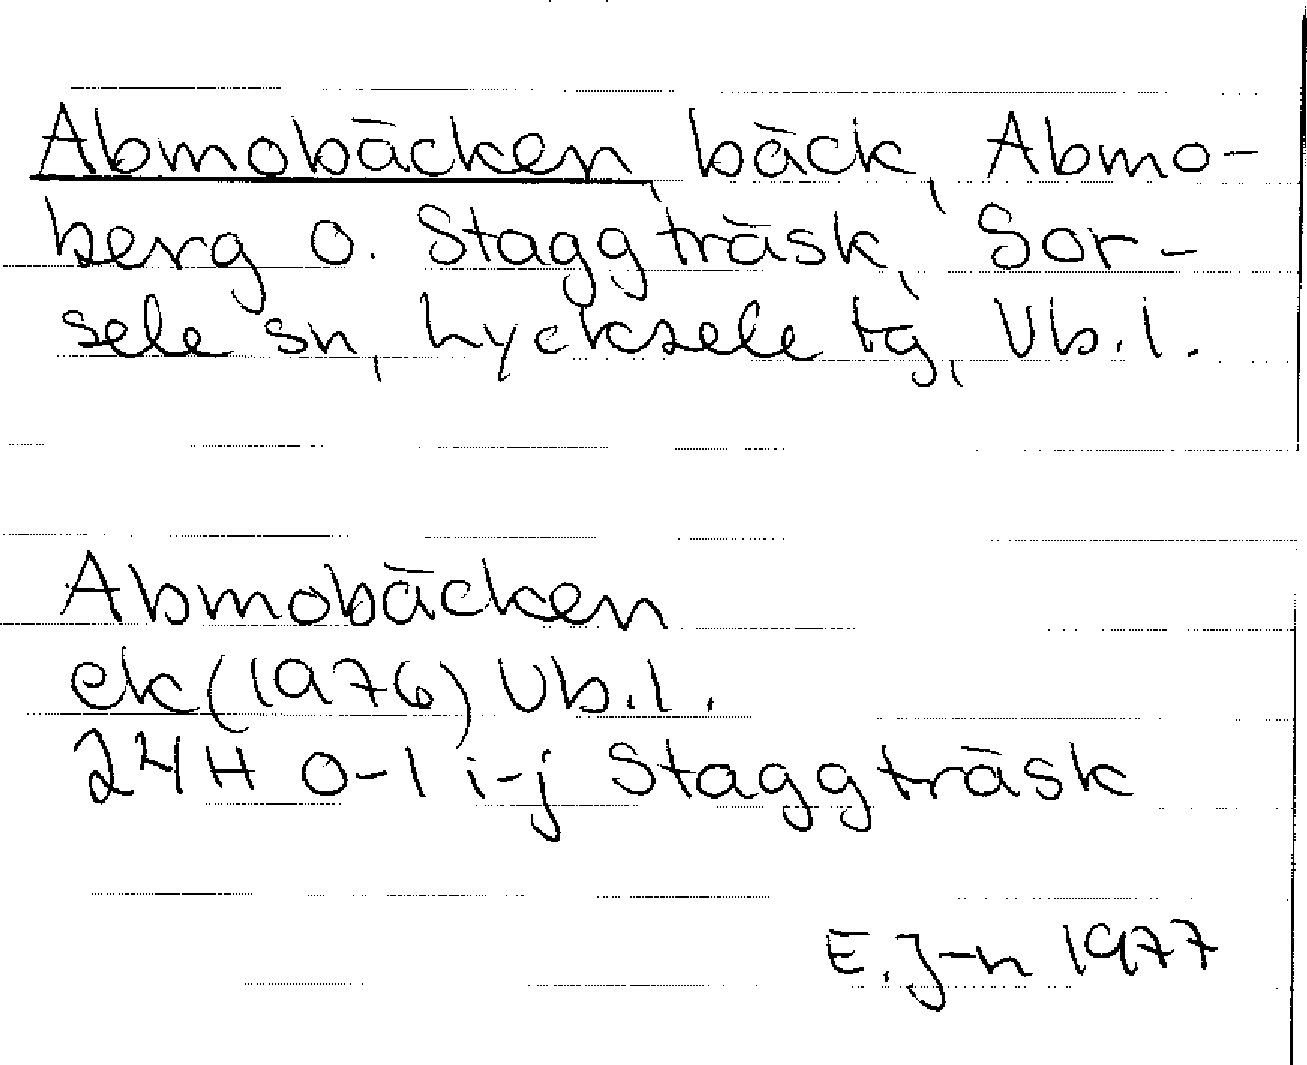 Abmobäcken, bäck, Abmo-
berg o. Staggträsk, Sor-
sele sn, Lycksele tg, Vb.l.
Abmobäcken
ek (1976) Vb.l.
24H 0-1 i-j Staggträsk
E. J-n 1977